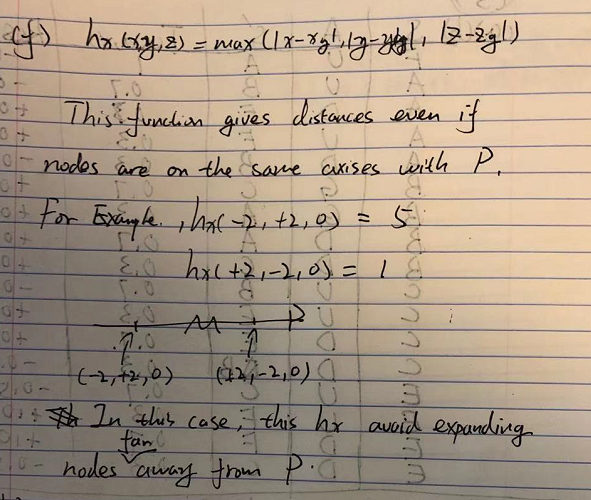 (f) hx(x,y,z) = max(|x-xg|, |y-yg|, |z-zg|)
This function gives distances even if
nodes are on the same axises with P.
For Example, hx(-2,+2,0) = 5
hx(+2,-2,0) = 1
P
(-2,+2,0) (+2,-2,0)
In this case, this hx avoid expanding
far
nodes away from P.